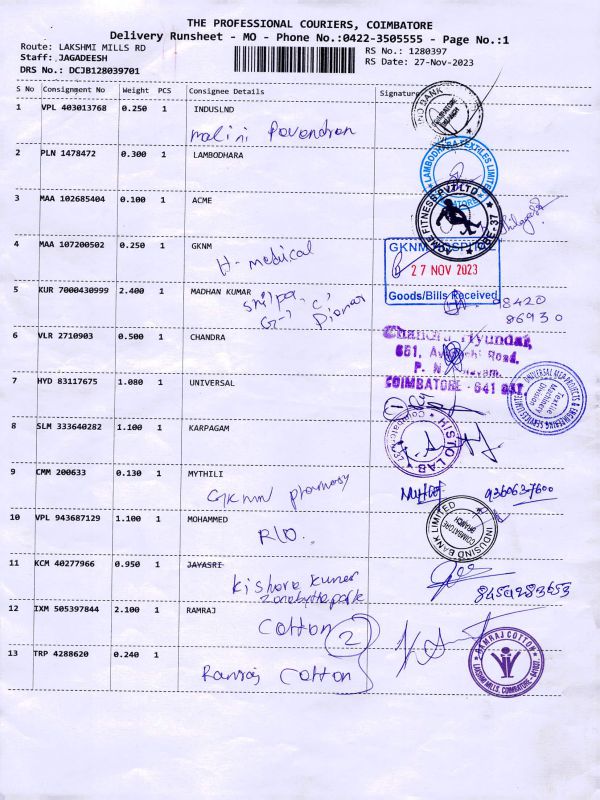 THE PROFESSIONAL COURIERS, COIMBATORE
Delivery Runsheet - MO - Phone No.:0422-3505555 - Page No.:1
Route: LAKSHMI MILLS RD
RS No.: 1280397
Staff: JAGADEESH
RS Date: 27-Nov-2023
DRS No.: DCJB128039701
S No Consignment No Weight PCS Consignee Details Signature
1 VPL 403013768 0.250 1 INDUSLND
malini Pavendran
2 PLN 1478472 0.300 1 LAMBODHARA
LAMBODHARA TEXTILES LIMITED
3 MAA 102685404 0.100 1 ACME
4 MAA 107200502 0.250 1 GKNM
H-medical
GKNM HOSPITAL
27 NOV 2023
Goods/Bills Received
5 KUR 7000430999 2.400 1 MADHAN KUMAR
98420
86930
6 VLR 2710903 0.500 1 CHANDRA
Chandra Hyundai,
COIMBATORE - 641 037
7 HYD 83117675 1.080 1 UNIVERSAL
Textile
Machinery
Division
8 SLM 333640282 1.100 1 KARPAGAM
HISTO LAB
9 CMM 200633 0.130 1 MYTHILI
GKNM pharmacy
10 VPL 943687129 1.100 1 MOHAMMED
R/O.
INDUSIND BANK LIMITED
COIMBATORE
BRANCH
11 KCM 40277966 0.950 1 JAYASRI
Kishore Kumer
12 IXM 505397844 2.100 1 RAMRAJ
Cotton 2
13 TRP 4288620 0.240 1
Ramraj Cotton
RAMRAJ COTTON
LAKSHMI MILLS, COIMBATORE